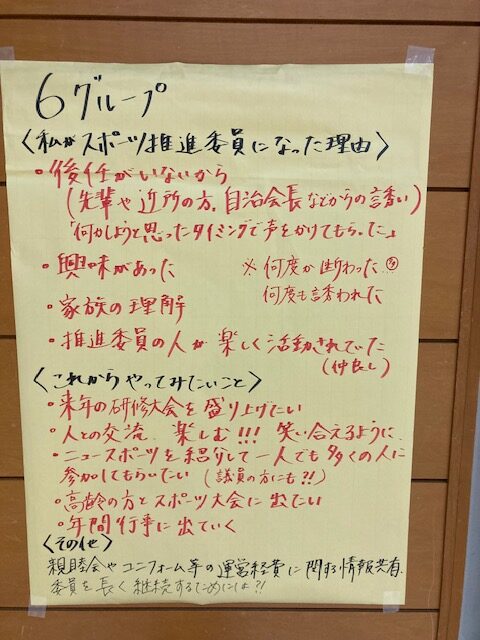 6グループ
〈私がスポーツ推進委員になった理由〉
・後任がいないから
(先輩や近所の方、自治会長などからの誘い)
「何かしようと思ったタイミングで声をかけてもらった」
・興味があった ※何度か断わった
・家族の理解 何度も誘われた
・推進委員の人が楽しく活動されていた
(仲良し)
〈これからやってみたいこと〉
・来年の研修大会を盛り上げたい
・人との交流、楽しむ!!! 笑い合えるように、
・ニュースポーツを紹介して一人でも多くの人に
参加してもらいたい(議員の方にも?!)
・高齢の方とスポーツ大会に出たい
・年間行事に出ていく
〈その他〉
親睦会やユニフォーム等の運営経費に関する情報共有、
委員を長く継続するためには?!